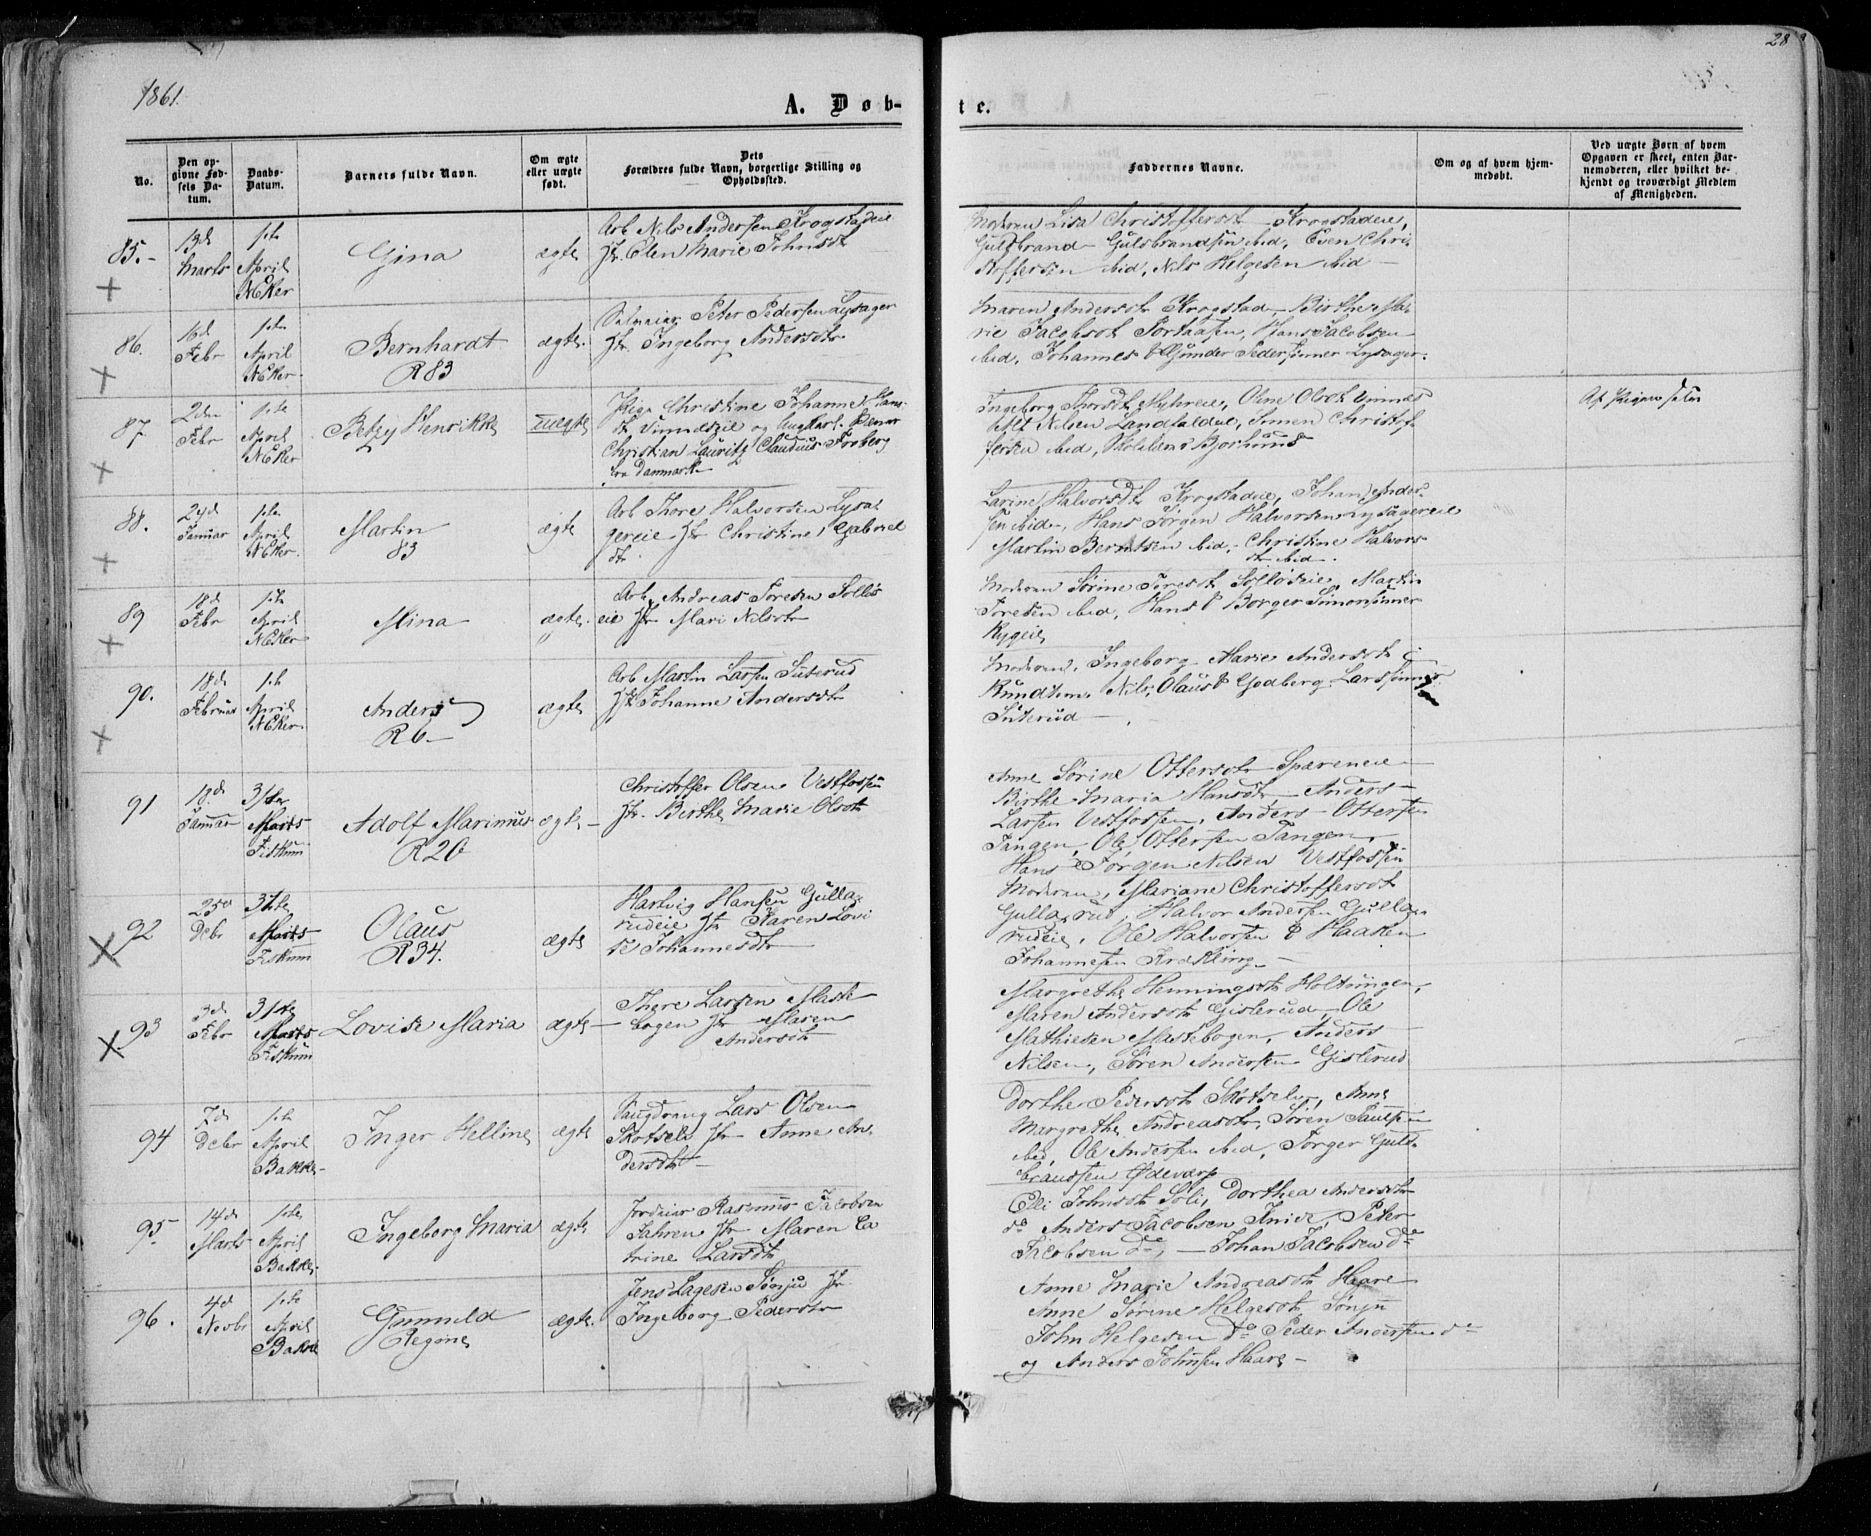 1861.
28
A. Døb-
te.
No.
Den op-
givne Fød-
sels Da-
tum.
Daabs-
Datum.
Barnets fulde Navn.
Om ægte
eller uægte
født.
Dets
Forældres fulde Navn, borgerlige Stilling og
Opholdssted.
Faddernes Navne.
Om og af hvem hjem-
medøbt.
Ved uægte Børn af hvem
Opgaven er skeet, enten Bar-
nemoderen, eller hvilket be-
kjendt og troværdigt Medlem
af Menigheden.
85.
13de
Marts
1ste
April
NEker
Gina
ægte
Arb Nils Andersen Krogstadeie
Hr. Elen Marie Johnsdt
Moderen Lisa Christoffersdt Krogstadeie,
Guldbrand Gulsbrandsen ibid, Even Chri-
stoffersen ibid, Nils Helgesen ibid
86.
Febr
1ste
April
NEker
Bernhardt
R 83
ægte
Peter Pedersen Lysager
Hr. Ingeborg Andersdtr
Maren Andersdt Krogstad Birthe Ma-
rie Jacobsdt Portaasen, Hans Jacobsen
ibid, Johannes & Gunder Pedersønner Lysager.
87
2den
Febr
1ste
April
NEker
Betzy Henrikke
uægte
Pige Christine Johanne Hans-
dt og Ungkarl
Christian Lauritz Claudius Froberg
fra Danmark
Ingeborg Thorsdt Myhreie, Oline Olsdt
Nilsen Landfaldeie, Simen Christof-
fersen ibid, Bjørlund
Af Pigen selv
88.
24d
Januar
1ste
April
NEker
Martin
83
ægte
Arb Thore Halvorsen Lysa-
gereie Hr Christine Gabriel
dt
Larine Halvorsdt Krogstadeie, Johan Ander-
sen ibid, Hans Jørgen Halvorsen Lysagereie
Martin Berntsen ibid, Christine Halvors
dt ibid.
89
18d
Febr
1ste
April
NEker
Mina
ægte
Arb. Andreas Toresen Solløs
eie Hr Mari Nilsdtr
Moderen Sørine Toresdt Solløseie, Martin
Toresen ibid, Hans & Borger Simonsønner
Rygeie
90.
18d
Februar
1ste
April
NEker
Anders
R 6
ægte
Arb Martin Larsen Suterud
Hr Johanne Andersdtr
Moderen, Ingeborg Marie Andersdt
Rundtom Nils, Olaus & Godberg Larssønner
Suterud
91
18de
Januar
31te
Marts
Fiskum
Adolf Marinius
R 20
ægte
Christoffer Olsen Vestfossen
Hr. Birthe Marie Olsdt
Anne Sørine Ottersdt Spæreneie
Birthe Maria Hansdt Anders
Larsen Vestfossen, Anders Ottersen
Tangen, Ole Ottersen Tangen,
Hans Jørgen Nilsen Vestfossen
92
Debr
31te
Marts
Fiskum
Olaus
R 34.
ægte
Hartvig Hansen Gulla-
rudeie Hr Karen Lovi
se Johannesdtr
Moderen, Mariane Christoffersdt
Gullarud, Halvor Andersen Gulla-
rudeie, Ole Halvorsen & Haaken
Johannesen Krekling
93
3d
Febr
31te
Marts
Fiskum
Lovise Maria
ægte
Thore Larsen Maste-
bogen Hr Maren
Andersdt
Margrethe Henningsdt Holtungen,
Maren Andersdt Gislerud, Ole
Mathiesen Mastebogen, Anders
Nilsen, Søren Andersen Gislerud
94
7d
Debr
1ste
April
Bakke
Inger Helline
ægte
Saugdreng Lars Olsen
Skotselv Hr Anne An-
dersdtr
Dorthe Pedersdt Skotselv, Anne
Margrethe Andreasdt, Søren Paulsen
ibid, Ole Andersen ibid, Torger Guls-
brandsen Ødeværp
95
14d
Marts
1ste
April
Bakke
Ingeborg Maria
ægte
Jordeier Rasmus Jacobsen
Jahren Hr Maren Ca
trine Larsdt
Elli Johnsdt Soli, Dorthea Andersdt
do Anders Jacobsen Knive, Peter
Jacobsen do, Johan Jacobsen do
96.
4d
Novbr
1ste
April
Bakke
Gunnild
Regine
ægte.
Jens Lagesen Sønju Hr
Ingeborg Pedersdt
Anne Marie Andreasdt Haare
Anne Sørine Helgesdt Sønju
John Helgesen do Peder Andersen do
og Anders Johnsen Haare